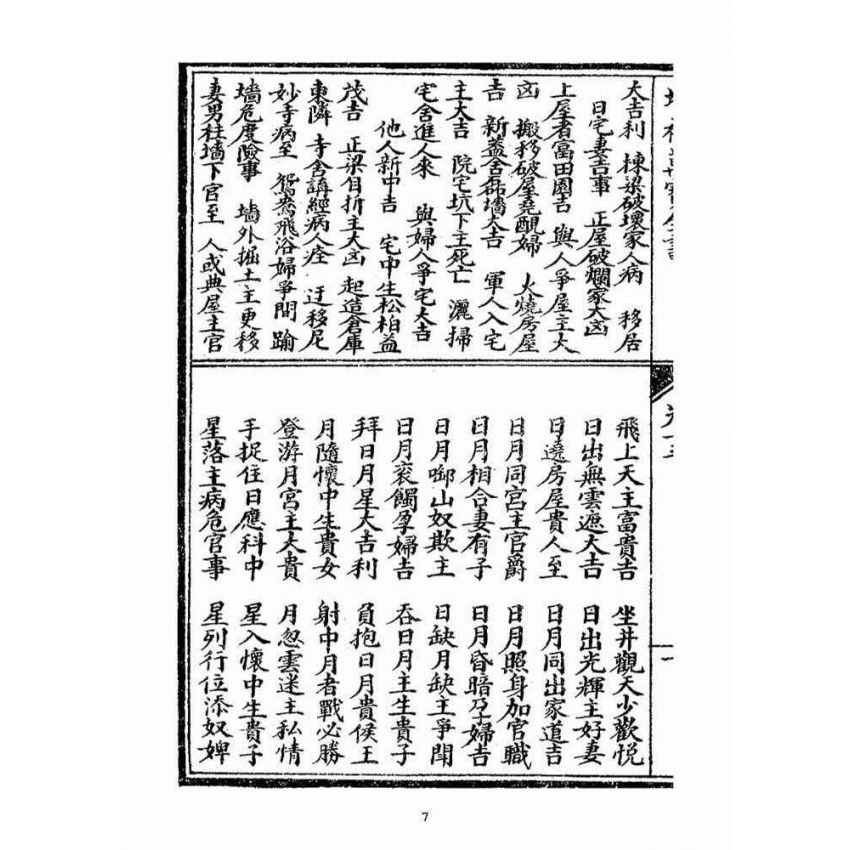 大吉利 棟梁破壞家人病 移居
日宅妻吉事 正屋破爛家大凶
上屋者富田園吉 與人爭屋主大
凶 搬移破屋堯醜婦 火燒房屋
吉 新蓋舍磊墻大吉 軍人入宅
主大吉 院宅坑下主死亡 灑掃
宅舍進人來 與婦人爭宅大吉
他人新中吉 宅中生松柏益
茂吉 正梁自折主大凶 起造倉庫
東隣 寺舍講經病人痊 迁移尼
妙寺病至 鴛鴦飛浴婦爭鬧 踰
墻危度險事 墻外掘土主更移
妻男杜墻下官至 人或典屋主官
飛上天主富貴吉 坐井觀天少歡悦
日出無雲遮大吉 日出光輝主好妻
日遶房屋貴人至 日月同出家道吉
日月同宮主官爵 日月照身加官職
日月相合妻有子 日月昏暗孕婦吉
日月啣山奴欺主 日缺月缺主爭鬧
日月衮𩟄孕婦吉 吞日月主生貴子
拜日月星大吉利 負抱日月貴侯王
月隨懷中生貴女 射中月者戰必勝
登游月宮主大貴 月忽雲迷主私情
手捉住日應科中 星入懷中生貴子
星落主病危官事 星列行位添奴婢
7